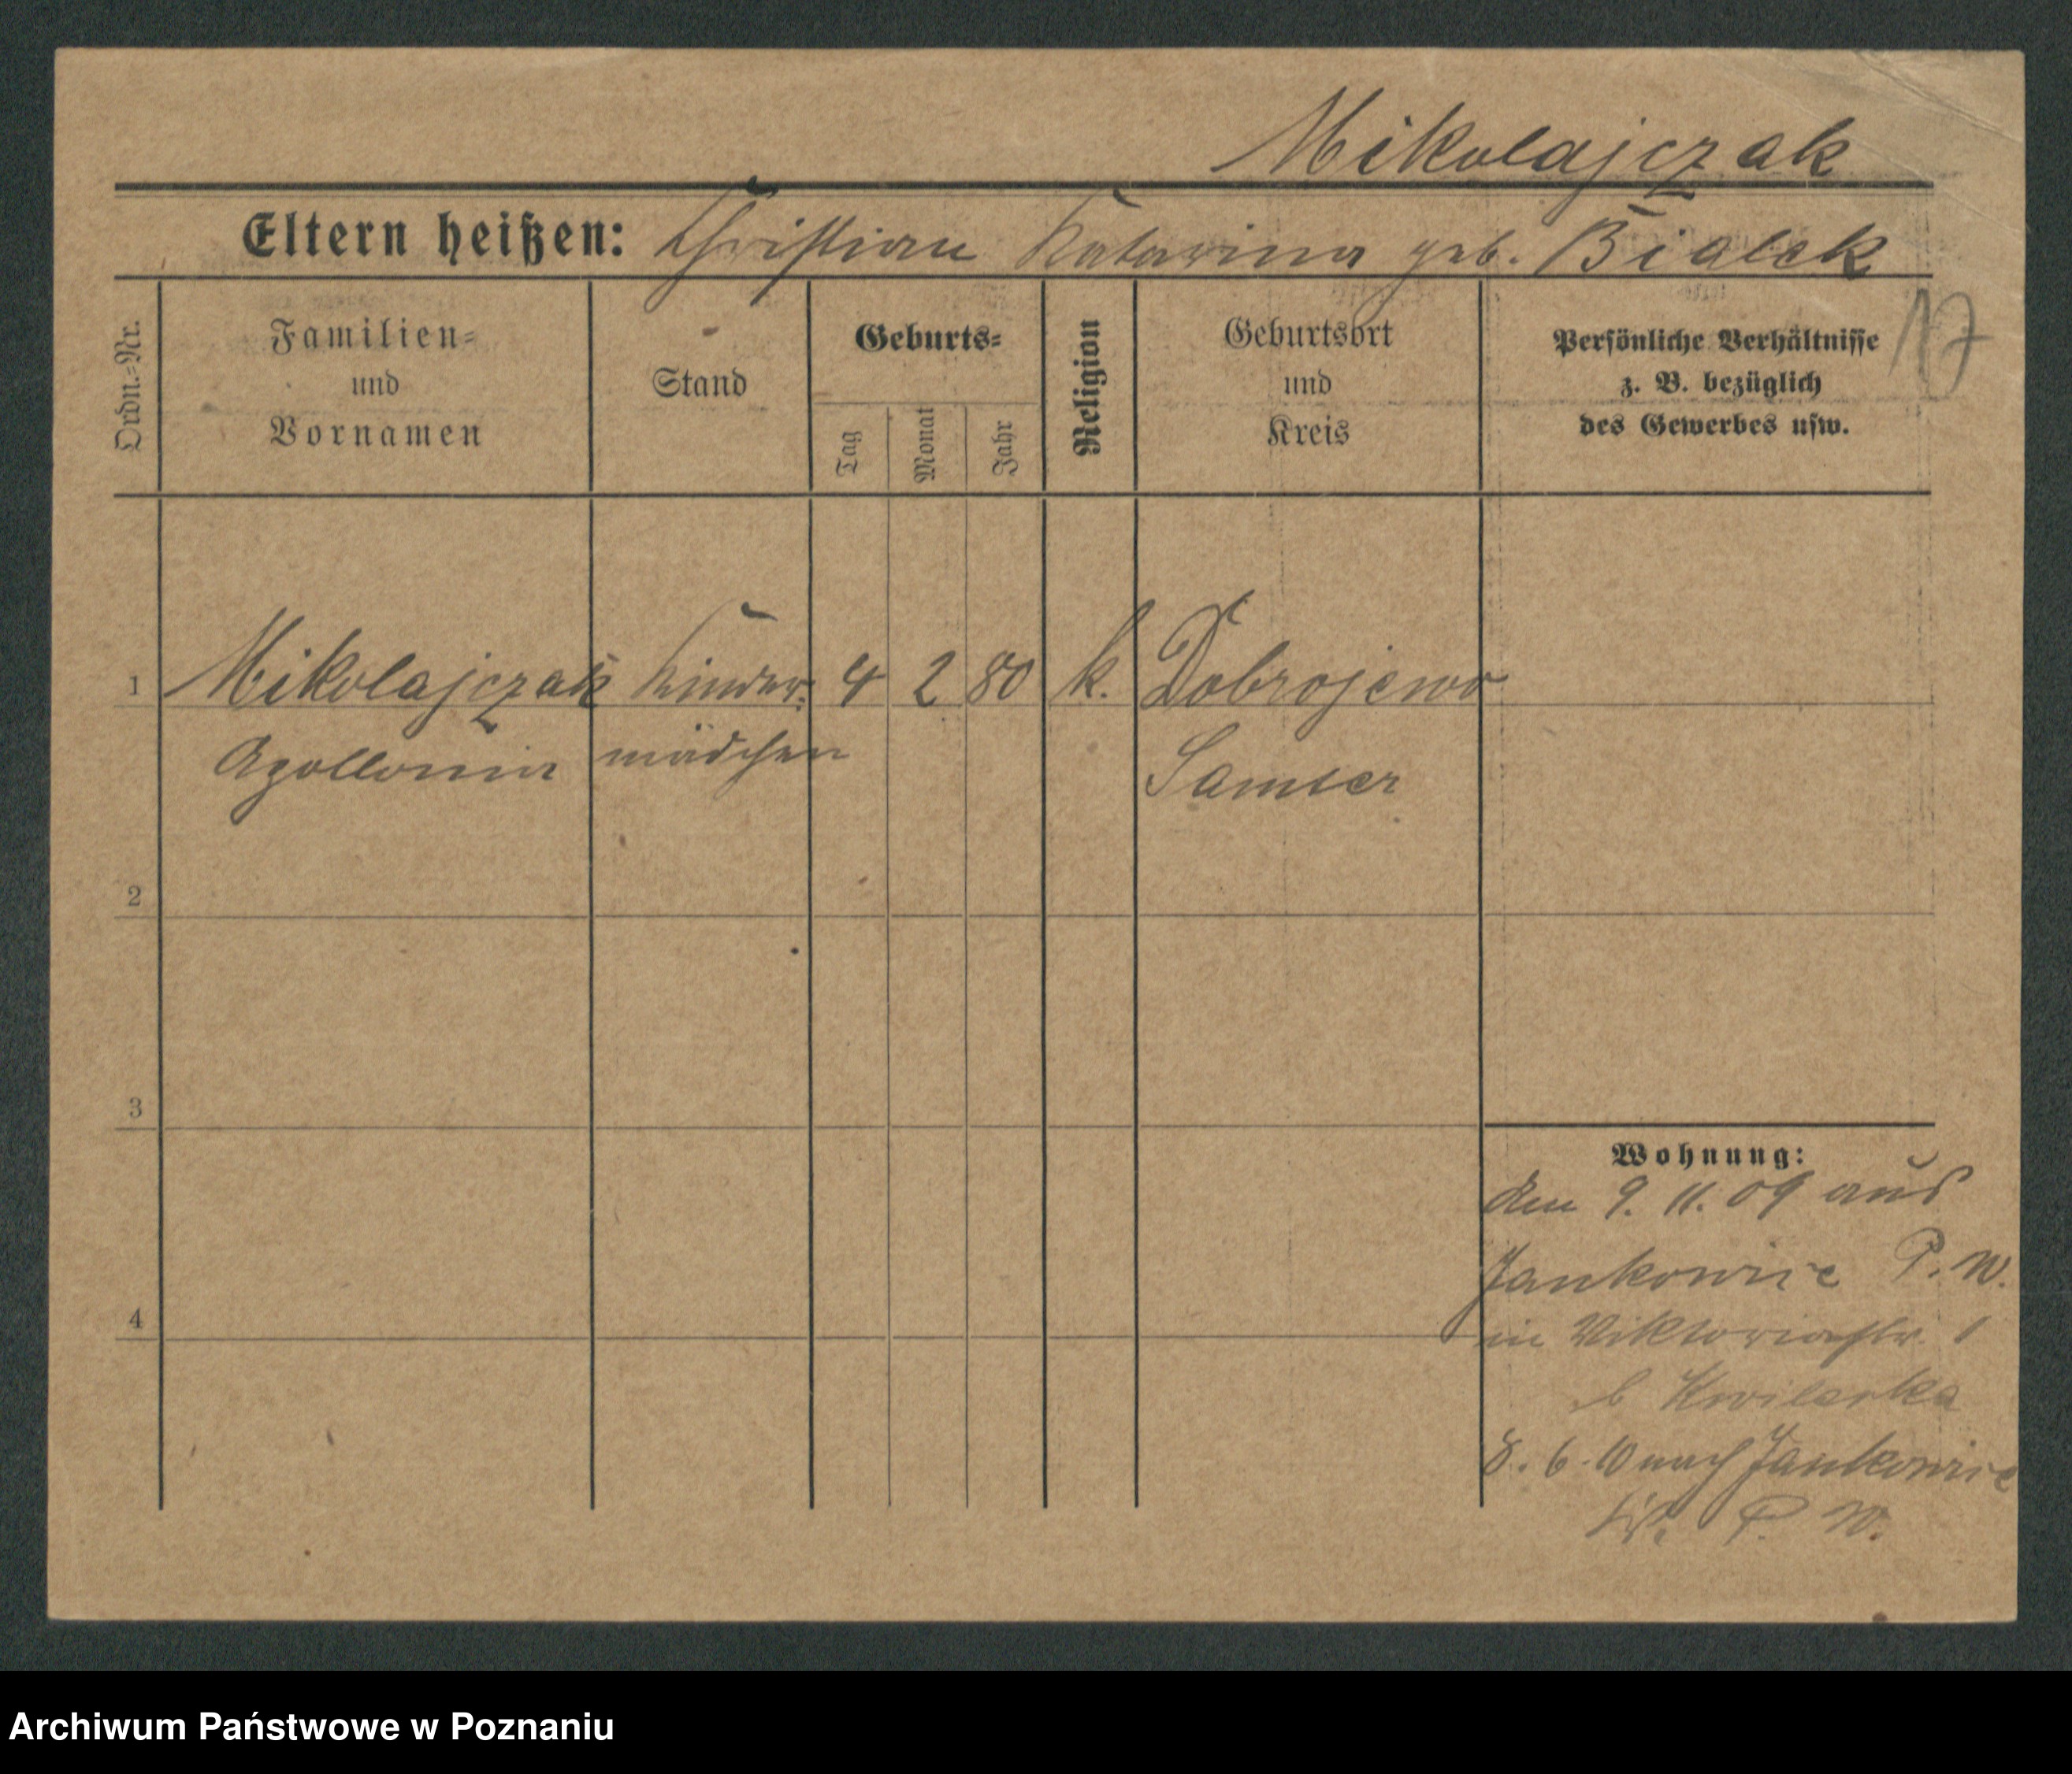 Mikolajczak
Eltern heißen: Christian Katarina geb. Bialek
17
Ordn.=Nr.
Familien=
und
Vornamen
Stand
Geburts=
Tag
Monat
Jahr
Religion
Geburtsort
und
Kreis
Persönliche Verhältnisse
z. B. bezüglich
des Gewerbes usw.
1 Mikolajczak Kinder= 4 2 80 k. Dobrojewo
Apollonia mädchen Samter
2
3
4
Wohnung:
den 9. 11. 09 aus
Jankowice P. W.
in Viktoriastr. 1
b
8. 6. 10 nach Jankowice
P. W.
Archiwum Państwowe w Poznaniu